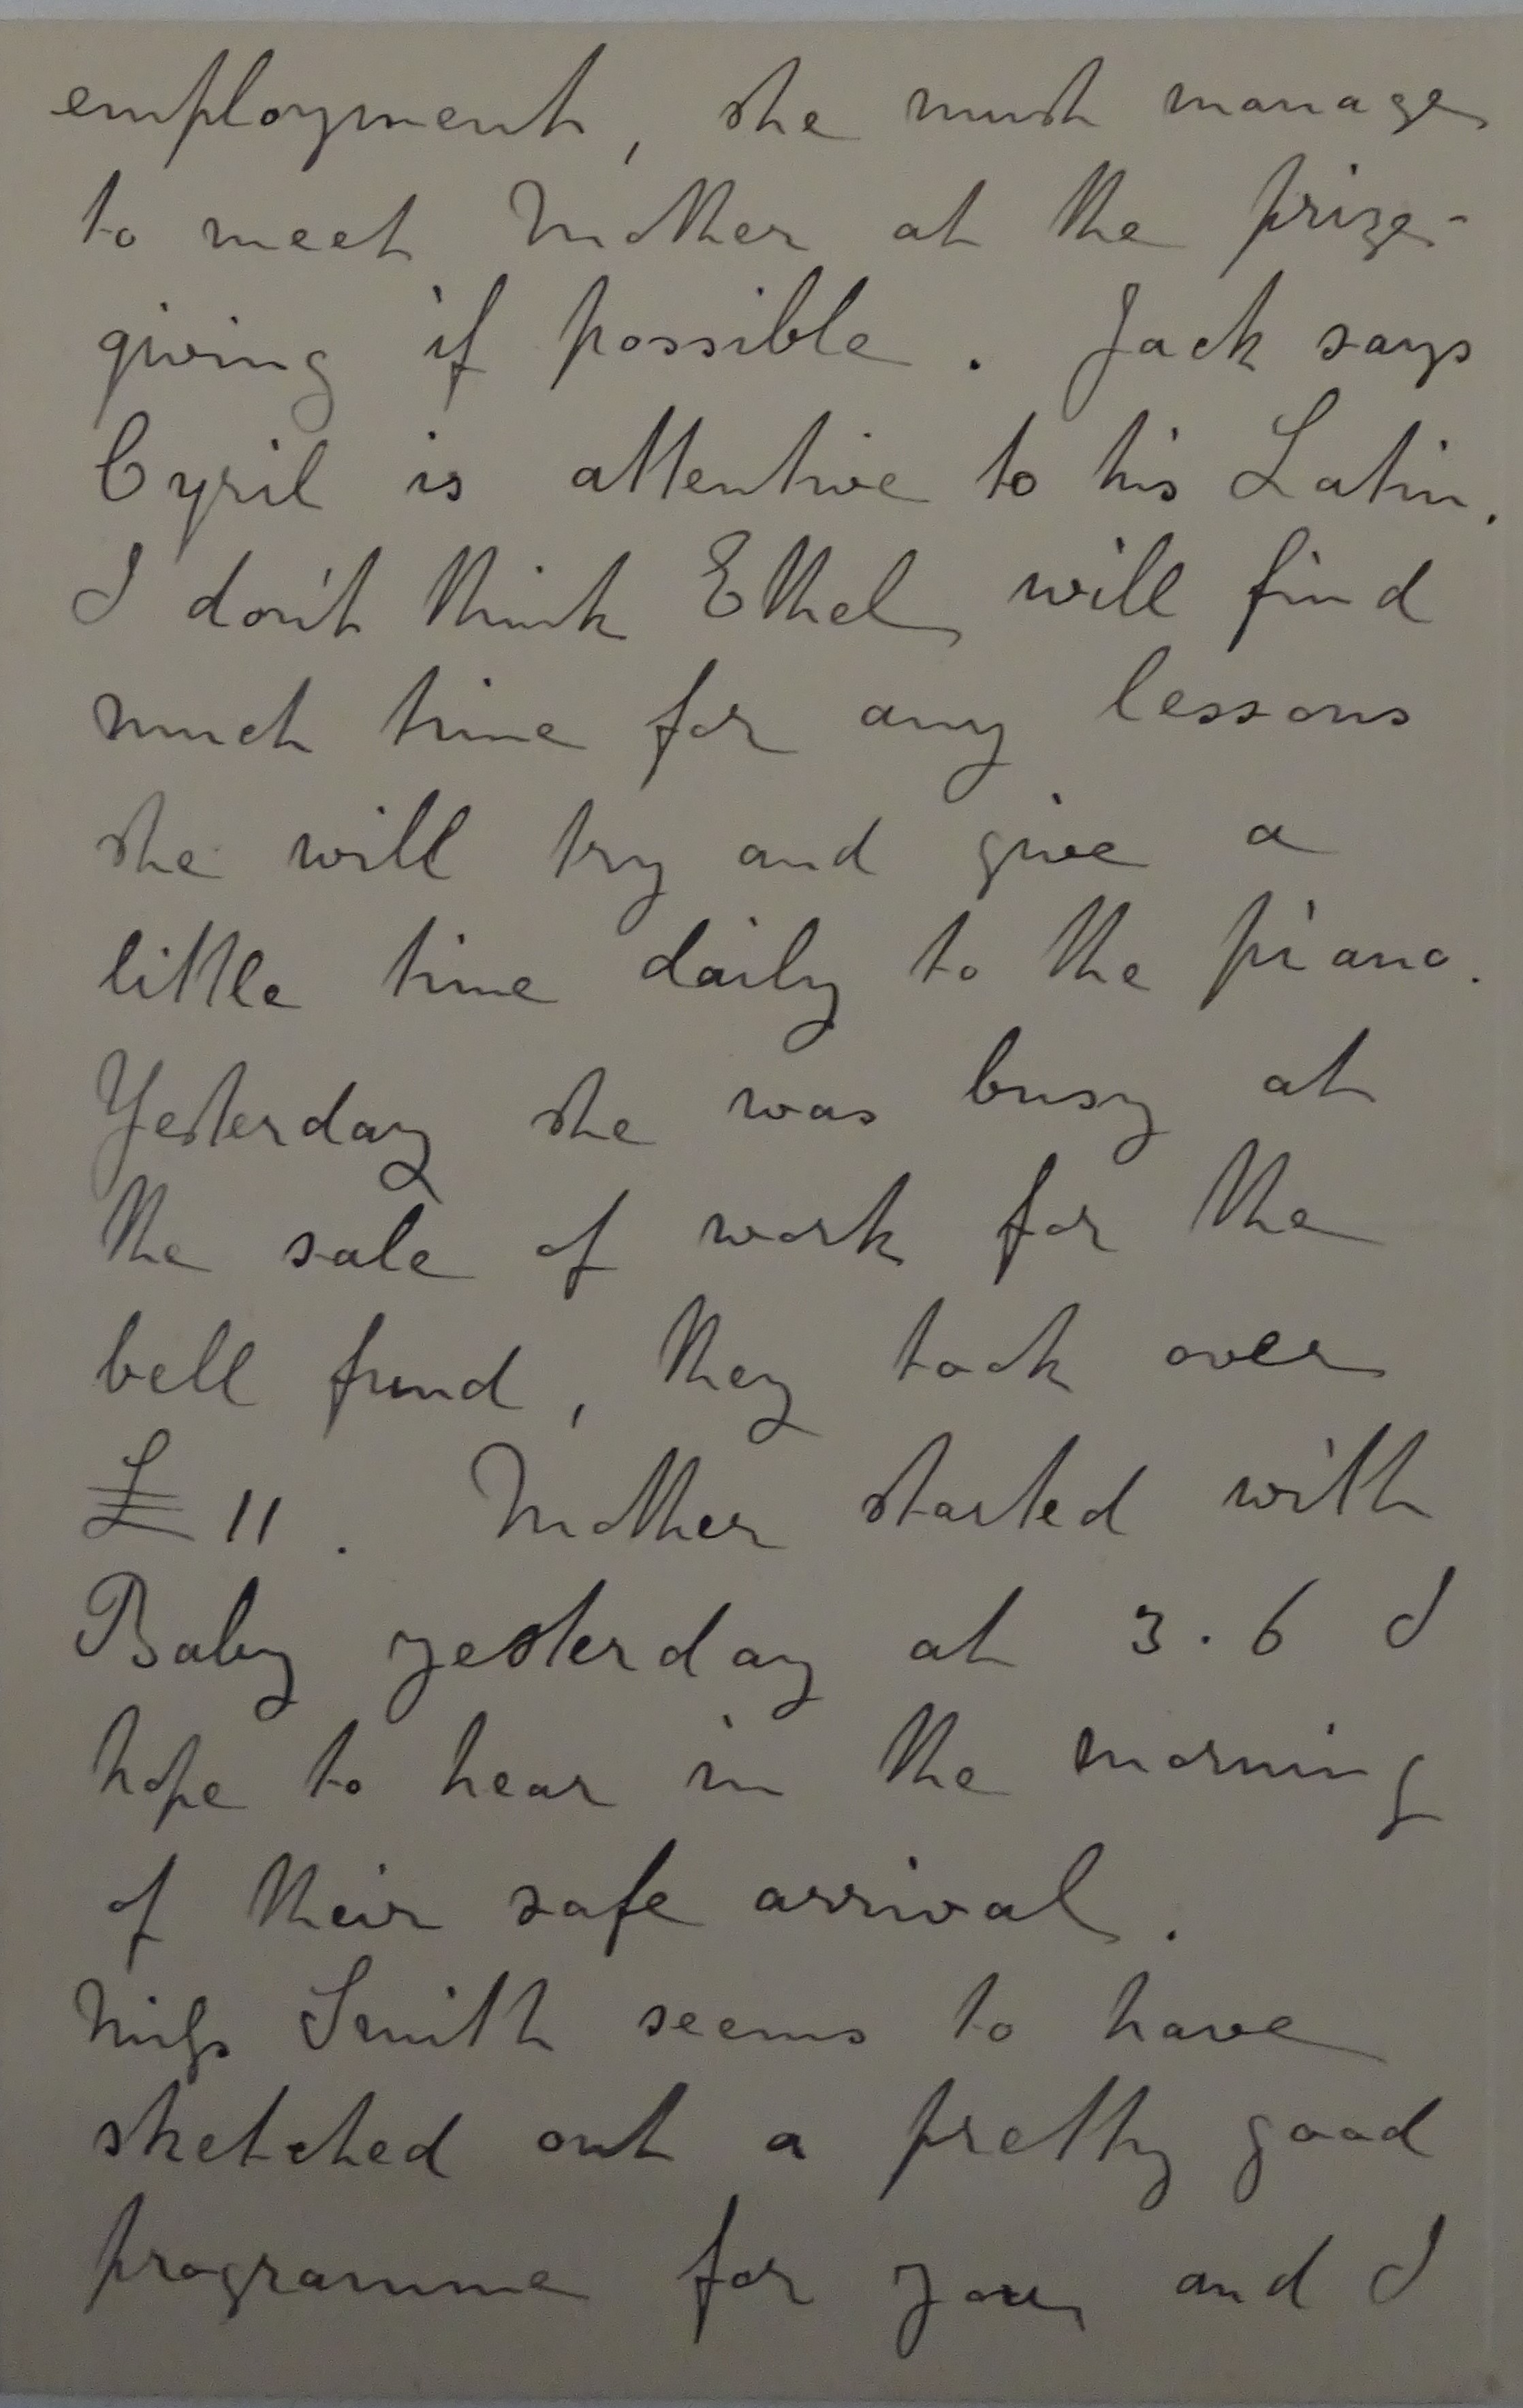 employment, she must manage
to meet Mother at the prize-
giving if possible. Jack says
Cyril is attentive to his Latin.
I don't think Ethel will find
much time for any lessons
she will try and give a
little time daily to the piano.
Yesterday she was busy at
the sale of work for the
bell fund, they took over
£11. Mother started with
Baby yesterday at 3.6 I
hope to hear in the morning
of their safe arrival.
Miss Smith seems to have
sketched out a pretty good
programme for you and I